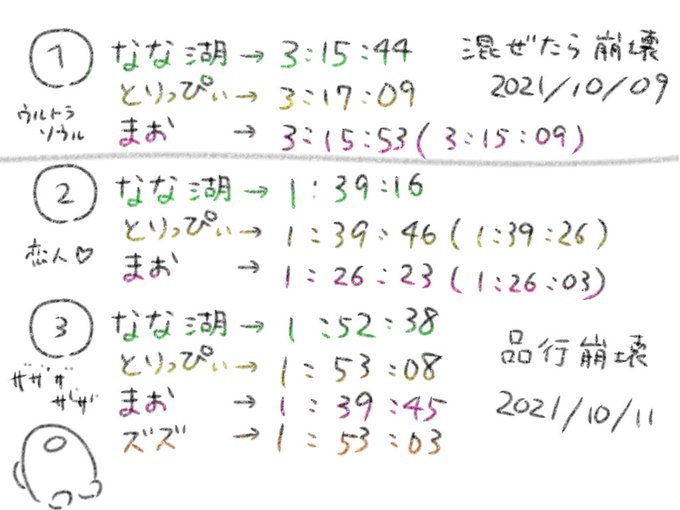 ① なな湖→ 3:15:44 混ぜたら崩壊
とりっぴぃ→ 3:17:09 2021/10/09
ウルトラソウル まお → 3:15:53(3:15:09)
② なな湖→ 1:39:16
とりっぴぃ→ 1:39:46(1:39:26)
恋人♡ まお → 1:26:23(1:26:03)
③ なな湖→ 1:52:38
とりっぴぃ→ 1:53:08 品行崩壊
ザザザザザ まお → 1:39:45 2021/10/11
ズズ → 1:53:03